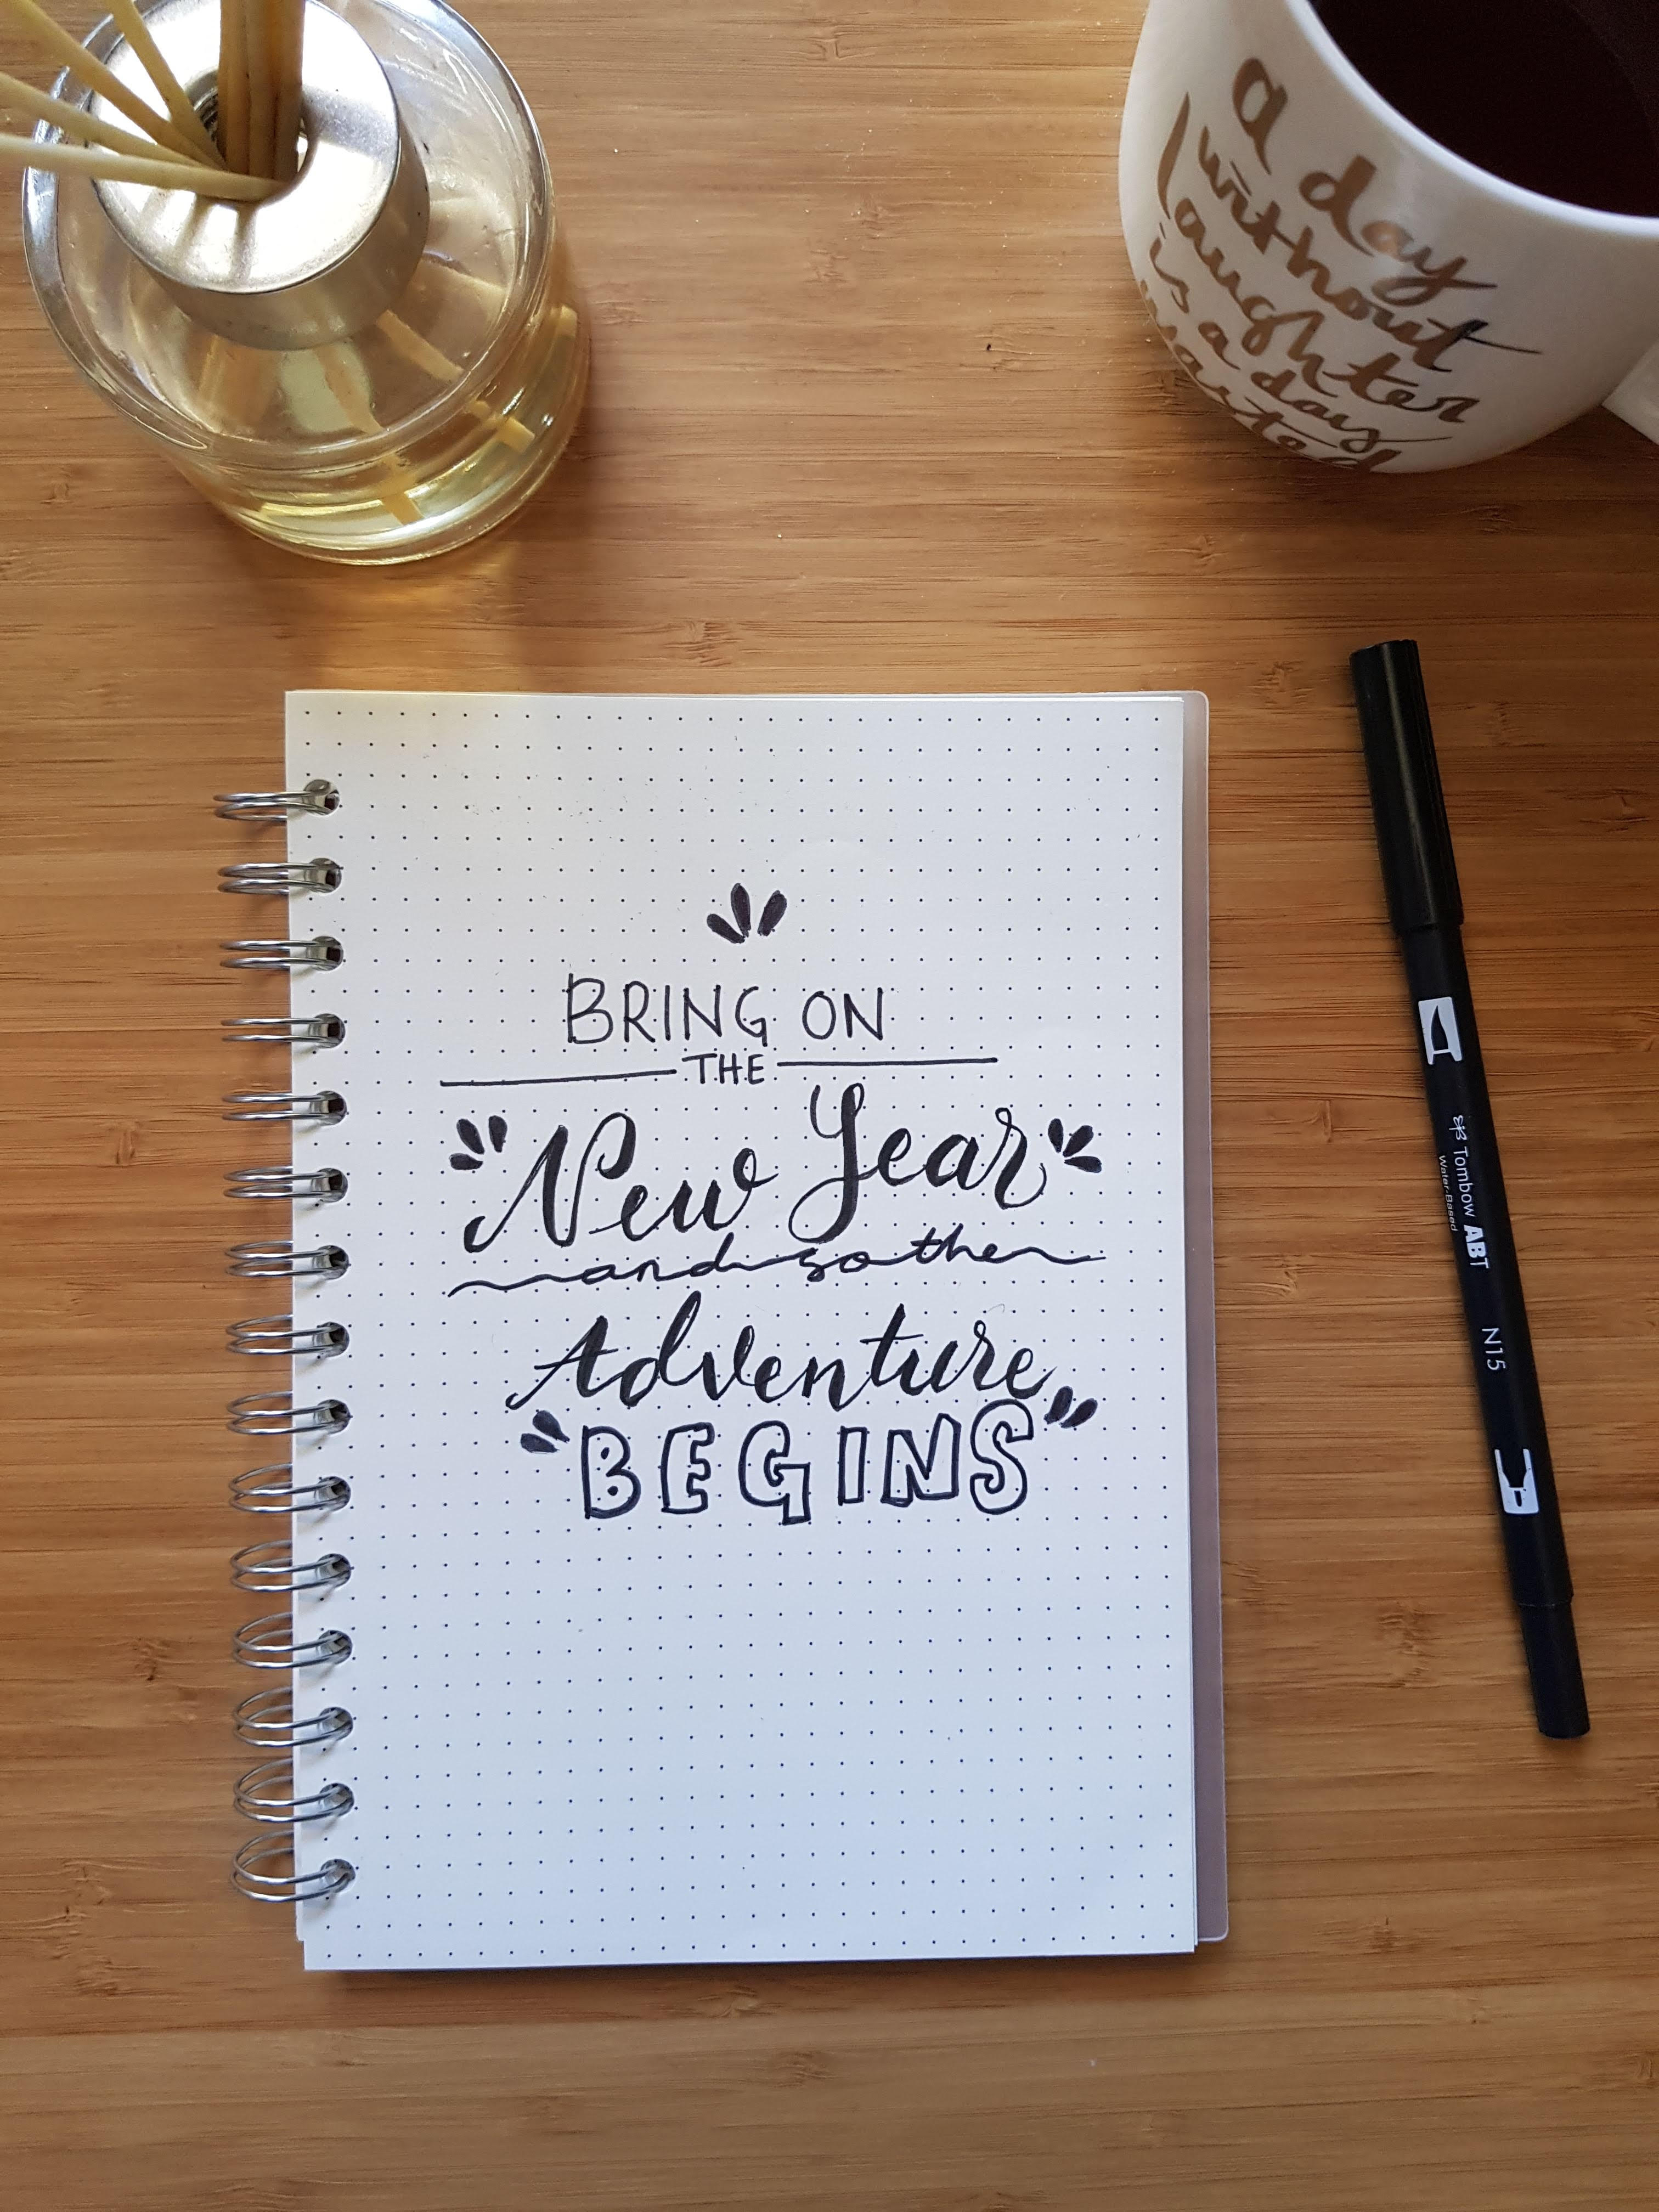 a day
without
laughter
is a day
wasted
BRING ON
THE
New Year
and so the
Adventure
BEGINS
Tombow ABT N15
Water-Based